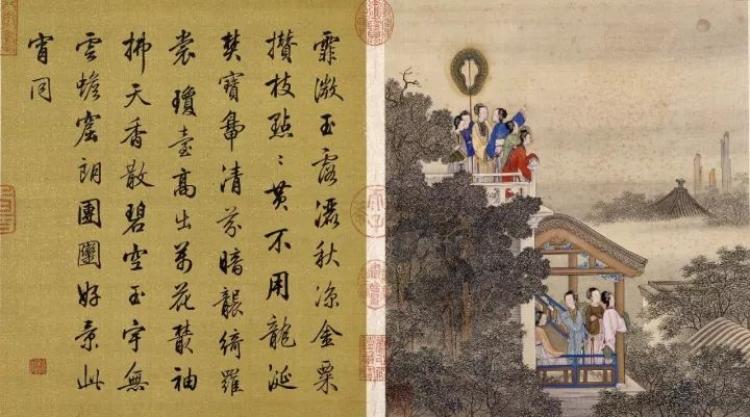 霏微玉露灑秋涼金粟
攢枝點點黃不用龍涎
焚寶鼎清芬暗襲綺羅
裳 瓊臺高出萬花叢袖
拂天香散碧空玉宇無
雲蟾窟朗團圞好景此
宵同